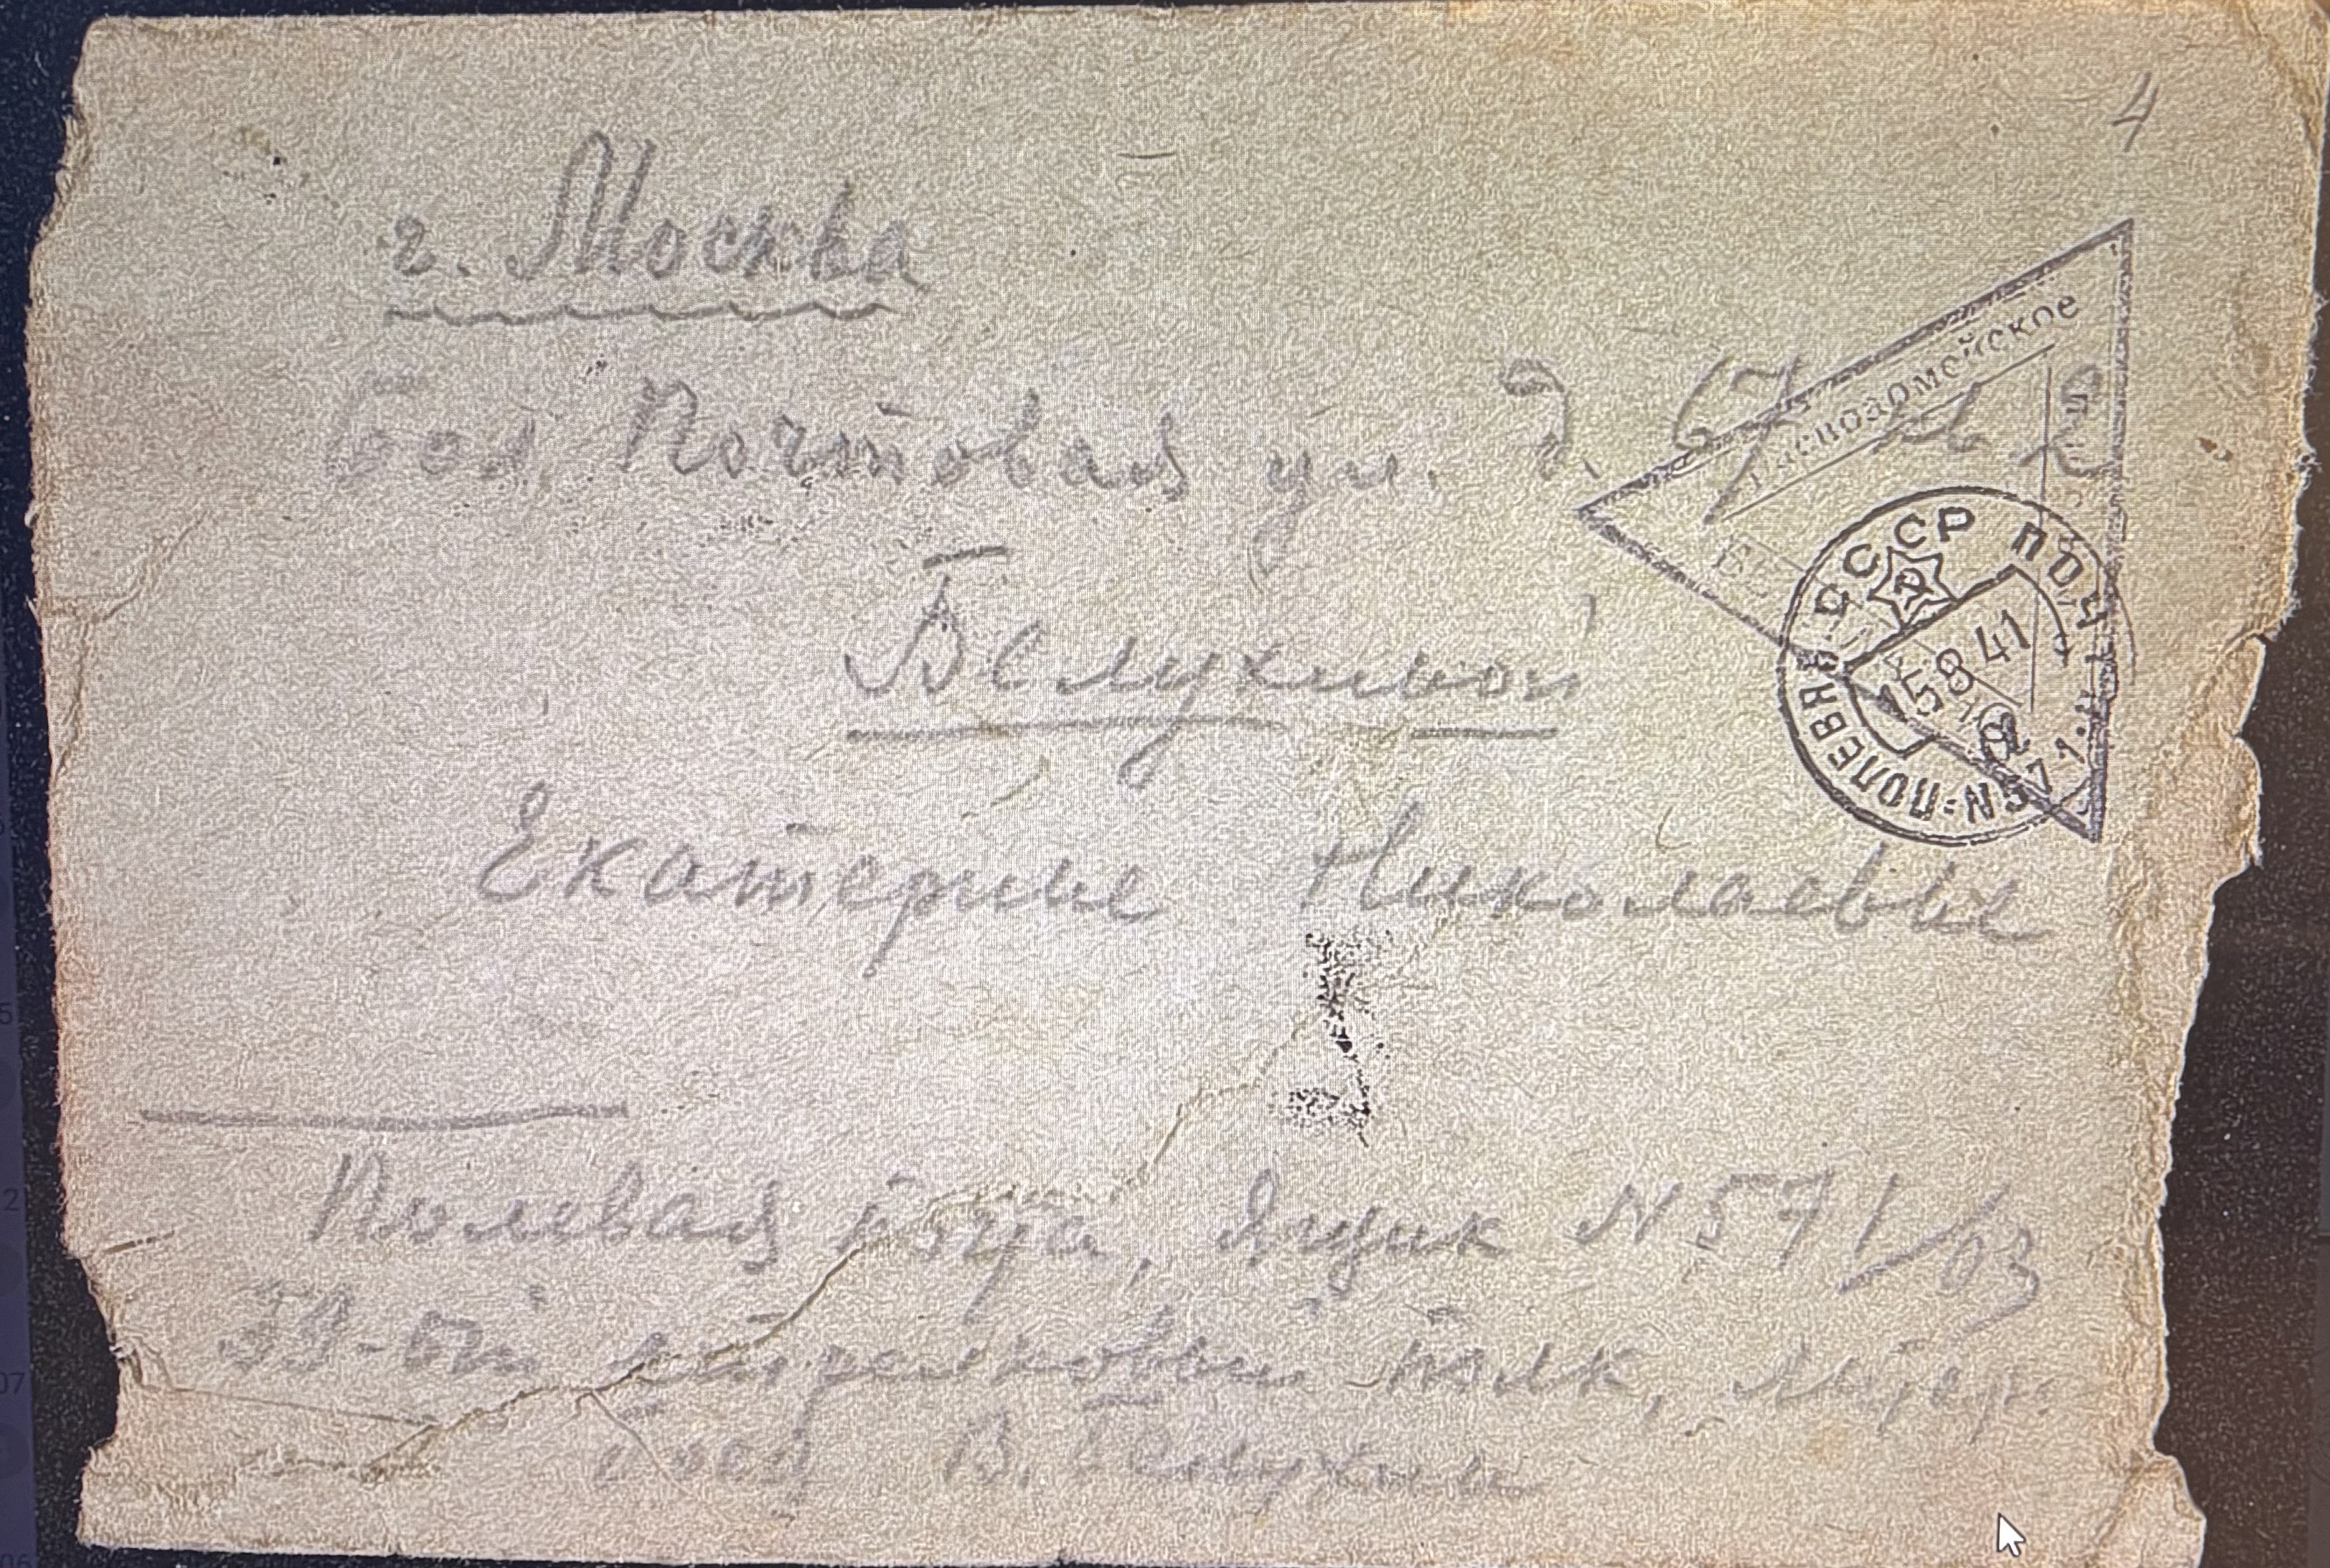 4
г. Москва
Бол. Почтовая ул. д. 67 кв 2
Красноармейское
Белухиной
СССР ПОЧТА
15 8 41
ПОЛЕВАЯ
№ 571
Екатерине Николаевне
Полевая почта, Ящик N 571/03
33-ий стрелковый полк, литер
В. Белухин